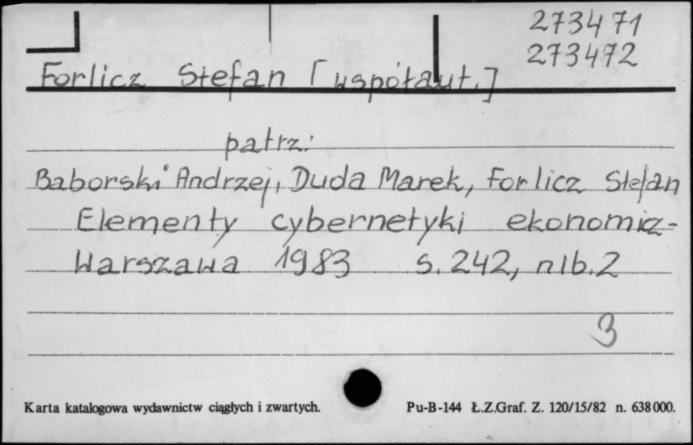 273471
273472
Forlicz Stefan [współaut.]
patrz:
Baborski Andrzej, Duda Marek, Forlicz Stefan
Elementy cybernetyki ekonomicz-
Warszawa 1983 s. 242, nlb. 2
3
Karta katalogowa wydawnictw ciągłych i zwartych. Pu-B-144 Ł.Z.Graf. Z. 120/15/82 n. 638000.